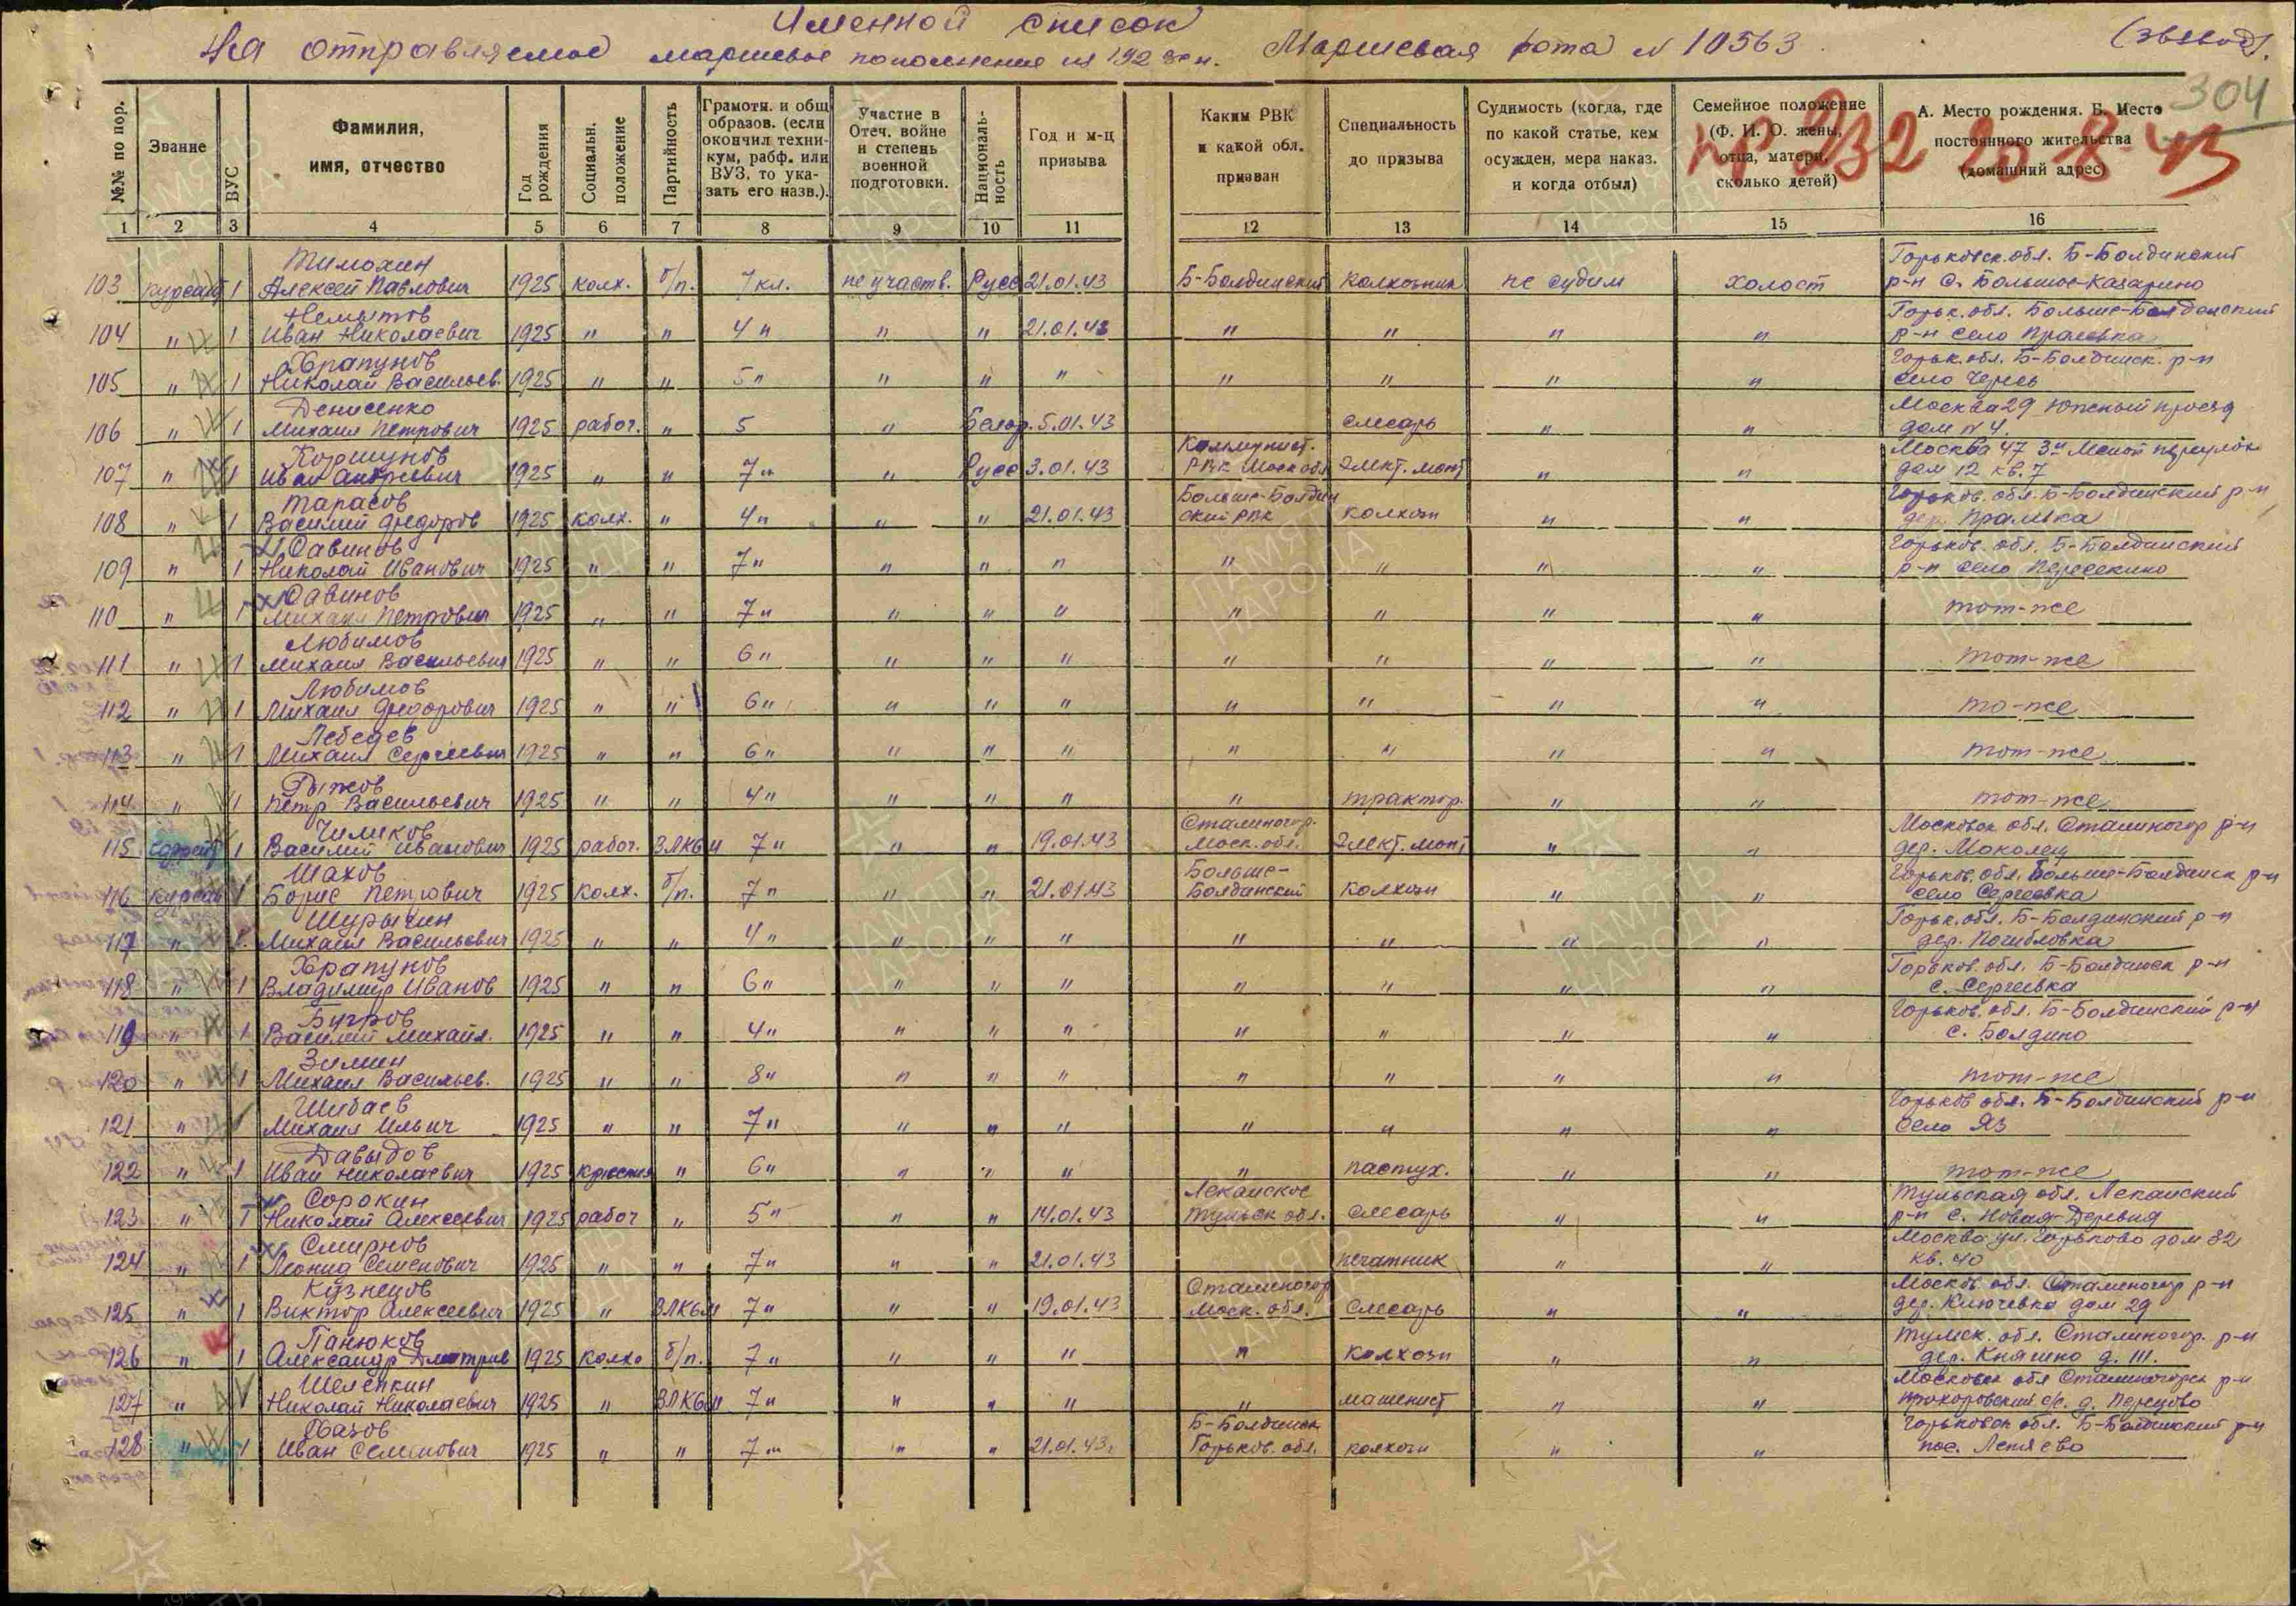 Именной список
На отправляемое маршевое пополнение из 192 зсп. Маршевая рота № 10563 (3 взвод).
304
пр 232 20-8-43
№№ по пор. Звание ВУС Фамилия, имя, отчество Год рождения Социальн. положение Партийность Грамотн. и общ образов. (если окончил техникум, рабф. или ВУЗ, то указать его назв.). Участие в Отеч. войне и степень военной подготовки. Национальность Год и м-ц призыва Каким РВК и какой обл. призван Специальность до призыва Судимость (когда, где по какой статье, кем осужден, мера наказ. и когда отбыл) Семейное положение (Ф. И. О. жены, отца, матери, сколько детей) А. Место рождения. Б. Место постоянного жительства (домашний адрес)
1 2 3 4 5 6 7 8 9 10 11 12 13 14 15 16
103 курсант 1 Тимохин Алексей Павлович 1925 колх. б/п. 7 кл. не участв. Русс 21.01.43 Б-Болдинский колхозник не судим холост Горьковск. обл. Б-Болдинский р-н с. Большое-Казарино
104 " 1 Немытов Иван Николаевич 1925 " " 4 " " " 21.01.43 " " " " Горьк. обл. Больше-Болдинский р-н село Pралевка
105 " 1 Храпунов Николай Васильев. 1925 " " 5 " " " " " " " " Горьк. обл. Б-Болдинск. р-н село
106 " 1 Денисенко Михаил Петрович 1925 рабоч. " 5 " Белор. 5.01.43 слесарь " " Москва 29 Южный проезд дом № 4.
107 " 1 Коршунов Иван Андреевич 1925 " " 7 " " Русс 3.01.43 Коммунист. РВК Моск обл Элект. монт " " Москва 47 3й Лесной переулок дом 12 кв. 7
108 " 1 Тарасов Василий Федоров 1925 колх. " 4 " " " 21.01.43 Больше-Болдинский РВК колхозн " " Горьков. обл. Б-Болдинский р-н дер.
109 " 1 Савинов Николай Иванович 1925 " " 7 " " " " " " " " Горьков. обл. Б-Болдинский р-н село Пересекино
110 " 1 Савинов Михаил Петрович 1925 " " 7 " " " " " " " " тот-же
111 " 1 Любимов Михаил Васильевич 1925 " " 6 " " " " " " " " тот-же
112 " 1 Любимов Михаил Федорович 1925 " " 6 " " " " " " " " то-же
113 " 1 Лебедев Михаил Сергеевич 1925 " " 6 " " " " " " " " тот-же
114 " 1 Рыжов Петр Васильевич 1925 " " 4 " " " " " трактор. " " тот-же
115 1 Чиликов Василий Иванович 1925 рабоч. ВЛКСМ 7 " " " 19.01.43 Сталиногор. Моск. обл. Элект. монт " " Московск обл. Сталиногор р-н дер. Маклец
116 курсан 1 Шахов Борис Петрович 1925 колх. б/п. 7 " " " 21.01.43 Больше-Болдинский колхозн " " Горьков. обл. Больше-Болдинск р-н село Сергеевка
117 " 1. Шурыгин Михаил Васильевич 1925 " " 4 " " " " " " " " Горьк. обл. Б-Болдинский р-н дер. Погибловка
118 " 1 Храпунов Владимир Иванов 1925 " " 6 " " " " " " " " Горьков. обл. Б-Болдинск р-н с. Сергеевка
119 " 1 Бугров Василий Михайл. 1925 " " 4 " " " " " " " " Горьков. обл. Б-Болдинский р-н с. Болдино
120 " 1 Зимин Михаил Васильев. 1925 " " 8 " " " " " " " " тот-же
121 " 1 Шибаев Михаил Ильич 1925 " " 7 " " " " " " " " Горьков обл. Б-Болдинский р-н село Яз
122 " 1 Давыдов Иван Николаевич 1925 крестья " 6 " " " " " пастух. " " тот-же
123 " 1 Сорокин Николай Алексеевич 1925 рабоч " 5 " " " 14.01.43 Тульск обл. слесарь " " Тульская обл. р-н с. Новая-Деревня
124 " 1 Смирнов Леонид Семенович 1925 " " 7 " " " 21.01.43 печатник " " Москва ул. Горького дом 82 кв. 40
125 " 1 Кузнецов Виктор Алексеевич 1925 " ВЛКСМ 7 " " " 19.01.43 Сталиногор Моск. обл. слесарь " " Москов. обл. Сталиногор р-н дер. Ключевка дом 29
126 " 1 Панюков Александр Дмитрив 1925 колхо б/п. 7 " " " " " колхозн " " Тульск. обл. Сталиногор. р-н дер. Княгино д. 111.
127 " 1 Шелепкин Николай Николаевич 1925 " ВЛКСМ 7 " " " " " машинист " " Московск обл Сталиногорск р-н Прохоровский с/с. д.
128 " 1 Фазов Иван Семенович 1925 " " 7 " " " 21.01.43г Б-Болдинск Горьков. обл. колхозн " " Горьковск обл. Б-Болдинский р-н пос. Летяево